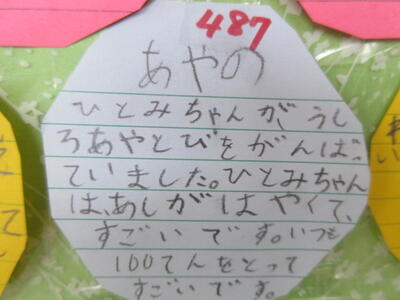 487
あやの
ひとみちゃんが、うし
ろあやとびをがんばっ
ていました。ひとみちゃん
は、あしがはやくて、
すごいです。いつも
100てんをとって
すごいです。